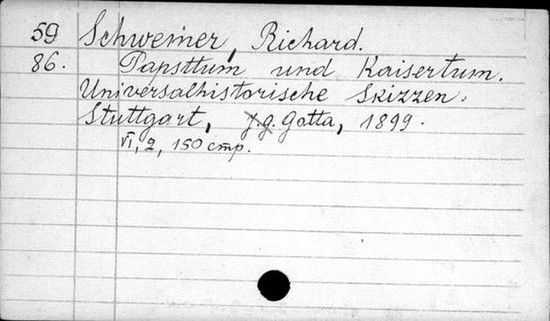 59 Schwemer, Richard.
86. Papsttum und Kaisertum.
Universalhistorische Skizzen.
Stuttgart, J.G. Gotta, 1899.
VI, 2, 150 стр.